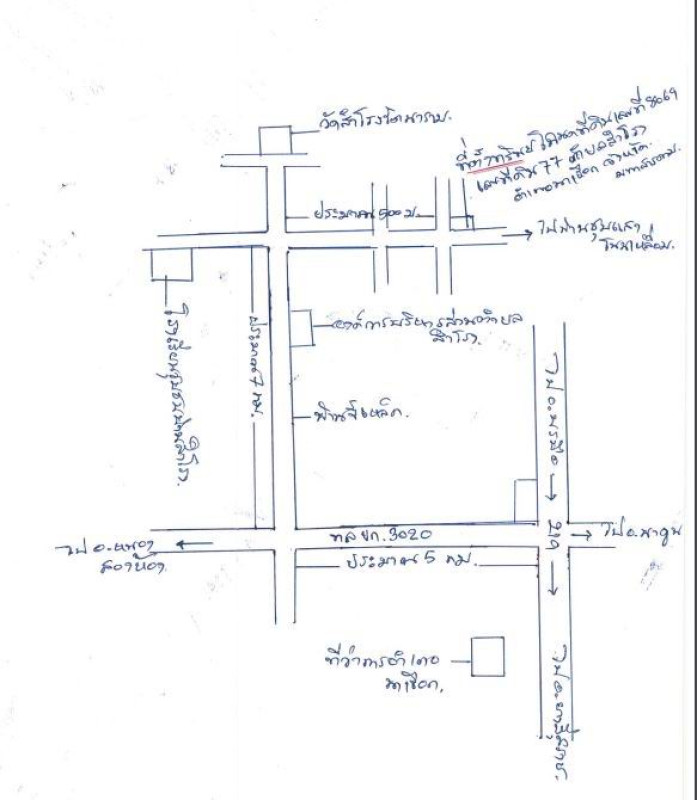 วัดสำโรงโคนาราม.
ที่ตั้งทรัพย์ โฉนดที่ดินเลขที่ 8069
เลขที่ดิน 77 ตำบลสำโรง
อำเภอนาเชือก จังหวัด.
มหาสารคาม.
ประมาณ 500 ม.
ไปบ้านชุมแสง
โรงเรียนชุมชนบ้านสำโรง.
ประมาณ 7 กม.
องค์การบริหารส่วนตำบล
สำโรง.
บ้านขี้เหล็ก.
ไป อ.บรบือ
219
ไป อ.หนอง
สองห้อง.
ทล ขก. 3020
ไป อ.นาดูน
ประมาณ 5 กม.
ที่ว่าการอำเภอ
นาเชือก.